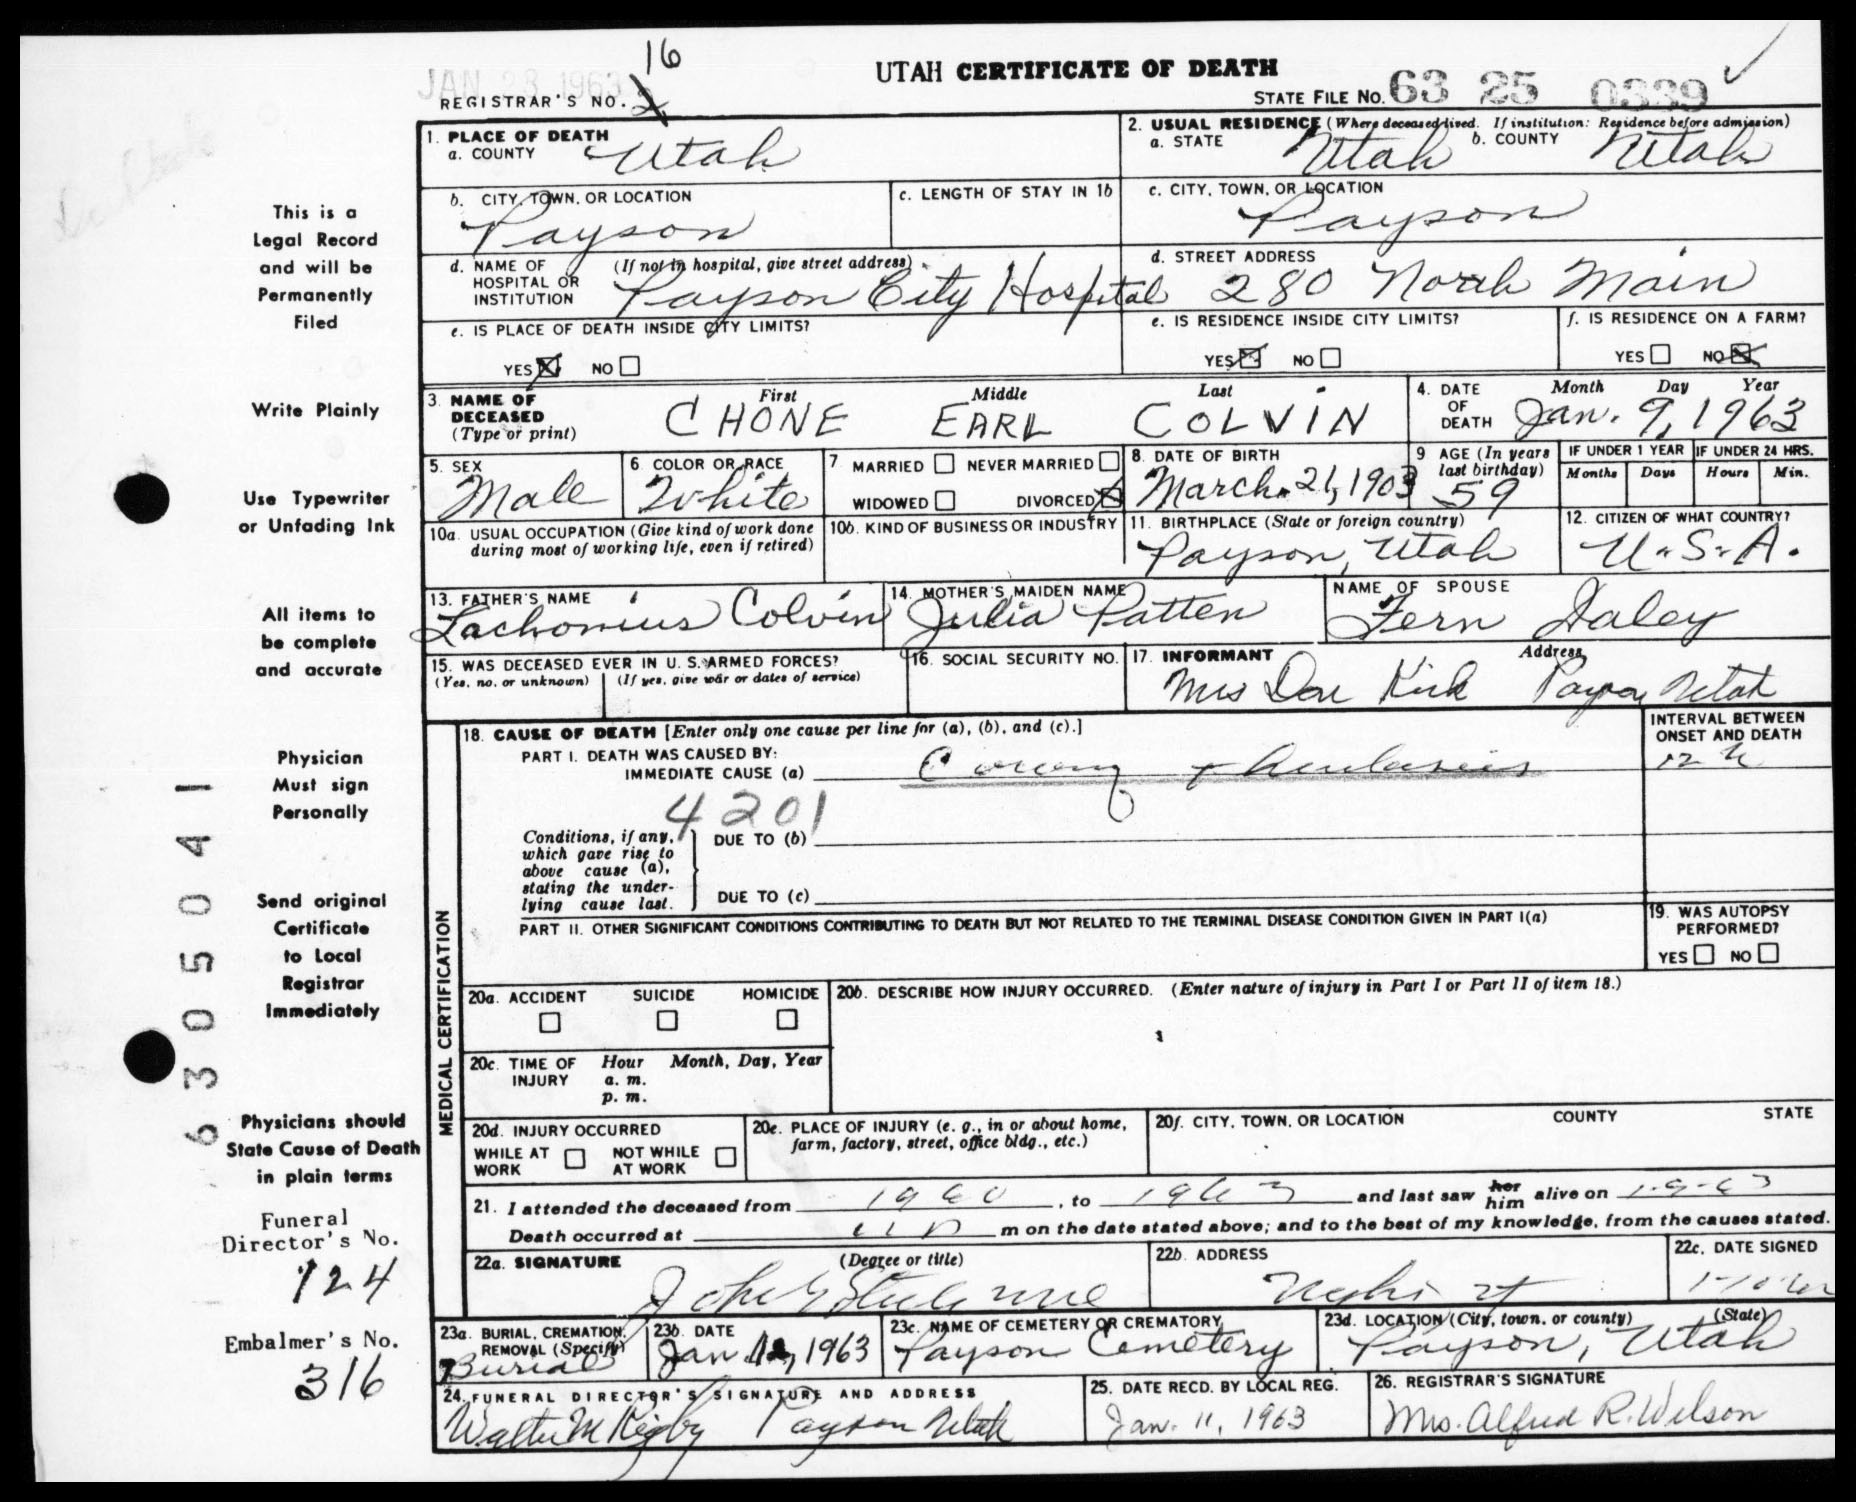 JAN 23 1963
16
UTAH CERTIFICATE OF DEATH
REGISTRAR'S NO. 2
STATE FILE NO. 63 25 0339
1. PLACE OF DEATH
a. COUNTY Utah
2. USUAL RESIDENCE (Where deceased lived. If institution: Residence before admission)
a. STATE Utah b. COUNTY Utah
b. CITY, TOWN, OR LOCATION
Payson
c. LENGTH OF STAY IN 1b
c. CITY, TOWN, OR LOCATION
Payson
d. NAME OF HOSPITAL OR INSTITUTION (If not in hospital, give street address)
Payson City Hospital
d. STREET ADDRESS
280 North Main
e. IS PLACE OF DEATH INSIDE CITY LIMITS?
YES X NO
e. IS RESIDENCE INSIDE CITY LIMITS?
YES X NO
f. IS RESIDENCE ON A FARM?
YES NO X
3. NAME OF DECEASED (Type or print)
First Middle Last
CHONE EARL COLVIN
4. DATE OF DEATH Month Day Year
Jan. 9, 1963
5. SEX
Male
6 COLOR OR RACE
White
7 MARRIED NEVER MARRIED
WIDOWED DIVORCED X
8. DATE OF BIRTH
March 21, 1903
9 AGE (In years last birthday)
59
IF UNDER 1 YEAR
Months Days
IF UNDER 24 HRS.
Hours Min.
10a. USUAL OCCUPATION (Give kind of work done during most of working life, even if retired)
10b. KIND OF BUSINESS OR INDUSTRY
11. BIRTHPLACE (State or foreign country)
Payson, Utah
12. CITIZEN OF WHAT COUNTRY?
U.S.A.
13. FATHER'S NAME
Lachonius Colvin
14. MOTHER'S MAIDEN NAME
Julia Patten
NAME OF SPOUSE
Fern Daley
15. WAS DECEASED EVER IN U. S. ARMED FORCES?
(Yes, no, or unknown) (If yes, give war or dates of service)
16. SOCIAL SECURITY NO.
17. INFORMANT Address
Mrs Don Kirk Payson, Utah
MEDICAL CERTIFICATION
18. CAUSE OF DEATH [Enter only one cause per line for (a), (b), and (c).]
INTERVAL BETWEEN ONSET AND DEATH
PART I. DEATH WAS CAUSED BY:
IMMEDIATE CAUSE (a) Coronary
12 h
4201
Conditions, if any, which gave rise to above cause (a), stating the underlying cause last.
DUE TO (b)
DUE TO (c)
PART II. OTHER SIGNIFICANT CONDITIONS CONTRIBUTING TO DEATH BUT NOT RELATED TO THE TERMINAL DISEASE CONDITION GIVEN IN PART I(a)
19. WAS AUTOPSY PERFORMED?
YES NO
20a. ACCIDENT SUICIDE HOMICIDE
20b. DESCRIBE HOW INJURY OCCURRED. (Enter nature of injury in Part I or Part II of item 18.)
20c. TIME OF INJURY Hour Month, Day, Year
a. m.
p. m.
20d. INJURY OCCURRED
WHILE AT WORK NOT WHILE AT WORK
20e. PLACE OF INJURY (e. g., in or about home, farm, factory, street, office bldg., etc.)
20f. CITY, TOWN, OR LOCATION COUNTY STATE
21. I attended the deceased from 1960, to 1963 and last saw her him alive on 1-9-63
Death occurred at m on the date stated above; and to the best of my knowledge, from the causes stated.
22a. SIGNATURE (Degree or title)
22b. ADDRESS
22c. DATE SIGNED
23a. BURIAL, CREMATION, REMOVAL (Specify)
Burial
23b. DATE
Jan. 12, 1963
23c. NAME OF CEMETERY OR CREMATORY
Payson Cemetery
23d. LOCATION (City, town, or county) (State)
Payson, Utah
24. FUNERAL DIRECTOR'S SIGNATURE AND ADDRESS
Walter M Rigby Payson Utah
25. DATE RECD. BY LOCAL REG.
Jan. 11, 1963
26. REGISTRAR'S SIGNATURE
Mrs. Alfred R. Wilson
This is a
Legal Record
and will be
Permanently
Filed
Write Plainly
Use Typewriter
or Unfading Ink
All items to
be complete
and accurate
Physician
Must sign
Personally
Send original
Certificate
to Local
Registrar
Immediately
Physicians should
State Cause of Death
in plain terms
Funeral
Director's No.
124
Embalmer's No.
316
6305041